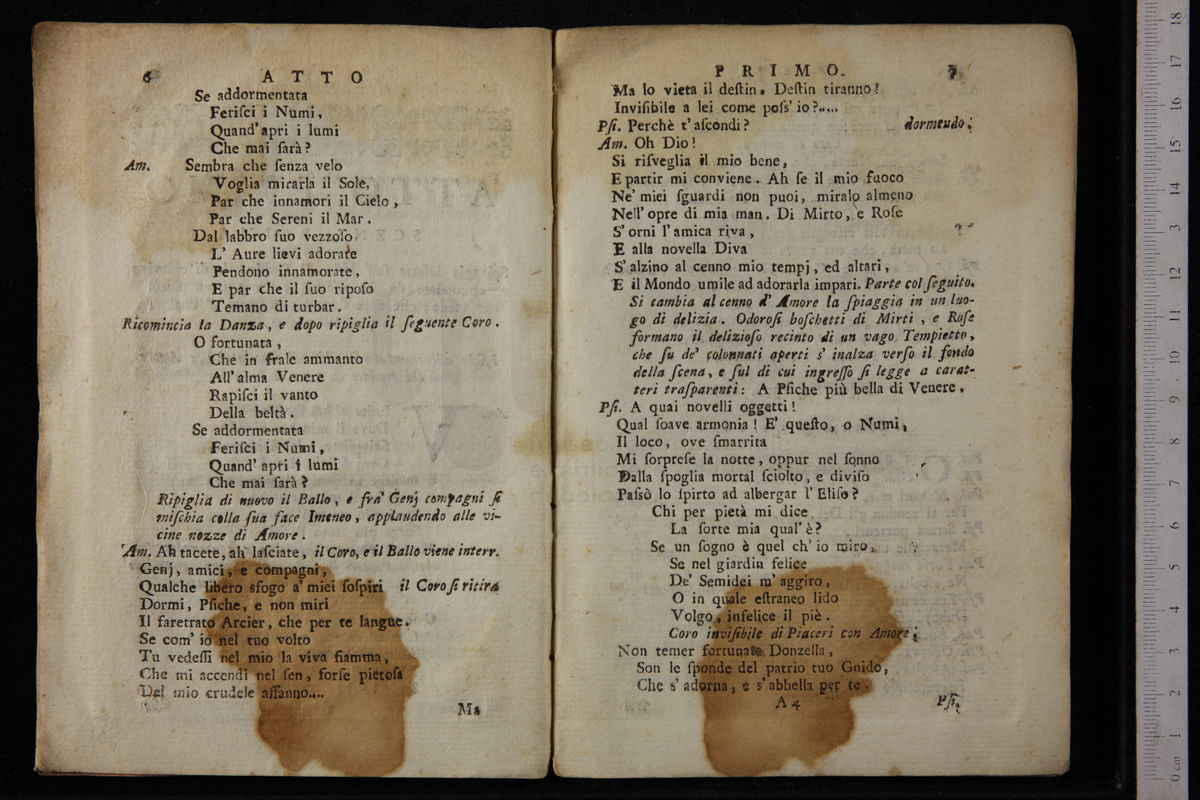 6 ATTO
Se addormentata
Feriſci i Numi,
Quand' apri i lumi
Che mai ſarà?
Am. Sembra che ſenza velo
Voglia mirarla il Sole,
Par che innamori il Cielo,
Par che Sereni il Mar.
Dal labbro ſuo vezzoſo
L' Aure lievi adorate
Pendono innamorate,
E par che il ſuo ripoſo
Temano di turbar.
Ricomincia la Danza, e dopo ripiglia il ſeguente Coro.
O fortunata,
Che in frale ammanto
All' alma Venere
Rapiſci il vanto
Della beltà.
Se addormentata
Feriſci i Numi,
Quand' apri i lumi
Che mai ſarà?
Ripiglia di nuovo il Ballo, e fra' Genj compagni ſi
miſchia colla ſua face Imeneo, applaudendo alle vi-
cine nozze di Amore.
Am. Ah tacete, ah laſciate, il Coro, e il Ballo viene interr.
Genj, amici, e compagni,
Qualche libero sfogo a' miei ſoſpiri il Coro ſi ritira
Dormi, Pſiche, e non miri
Il faretrato Arcier, che per te langue.
Se com' io nel tuo volto
Tu vedeſſi nel mio la viva fiamma,
Che mi accendi nel ſen, forſe pietoſa
Del mio crudele affanno....
Ma
PRIMO. 7
Ma lo vieta il deſtin. Deſtin tiranno!
Inviſibile a lei come poſs' io?....
Pſi. Perchè t' aſcondi? dormendo.
Am. Oh Dio!
Si riſveglia il mio bene,
E partir mi conviene. Ah ſe il mio fuoco
Ne' miei ſguardi non puoi, miralo almeno
Nell' opre di mia man. Di Mirto, e Roſe
S' orni l' amica riva,
E alla novella Diva
S' alzino al cenno mio tempj, ed altari,
E il Mondo umile ad adorarla impari. Parte col ſeguito.
Si cambia al cenno d' Amore la ſpiaggia in un luo-
go di delizia. Odoroſi boſchetti di Mirti, e Roſe
formano il delizioſo recinto di un vago Tempietto,
che ſu de' colonnati aperti s' inalza verſo il fondo
della ſcena, e ſul di cui ingreſſo ſi legge a carat-
teri traſparenti: A Pſiche più bella di Venere.
Pſi. A quai novelli oggetti!
Qual ſoave armonia! E' queſto, o Numi,
Il loco, ove ſmarrita
Mi ſorpreſe la notte, oppur nel ſonno
Dalla ſpoglia mortal ſciolto, e diviſo
Paſsò lo ſpirto ad albergar l' Eliſo?
Chi per pietà mi dice
La ſorte mia qual' è?
Se un ſogno è quel ch' io miro,
Se nel giardin felice
De' Semidei m' aggiro,
O in quale eſtraneo lido
Volgo, infelice il piè.
Coro inviſibile di Piaceri con Amore.
Non temer fortunata Donzella,
Son le ſponde del patrio tuo Gnido,
Che s' adorna, e s' abbella per te.
A 4 Pſi.